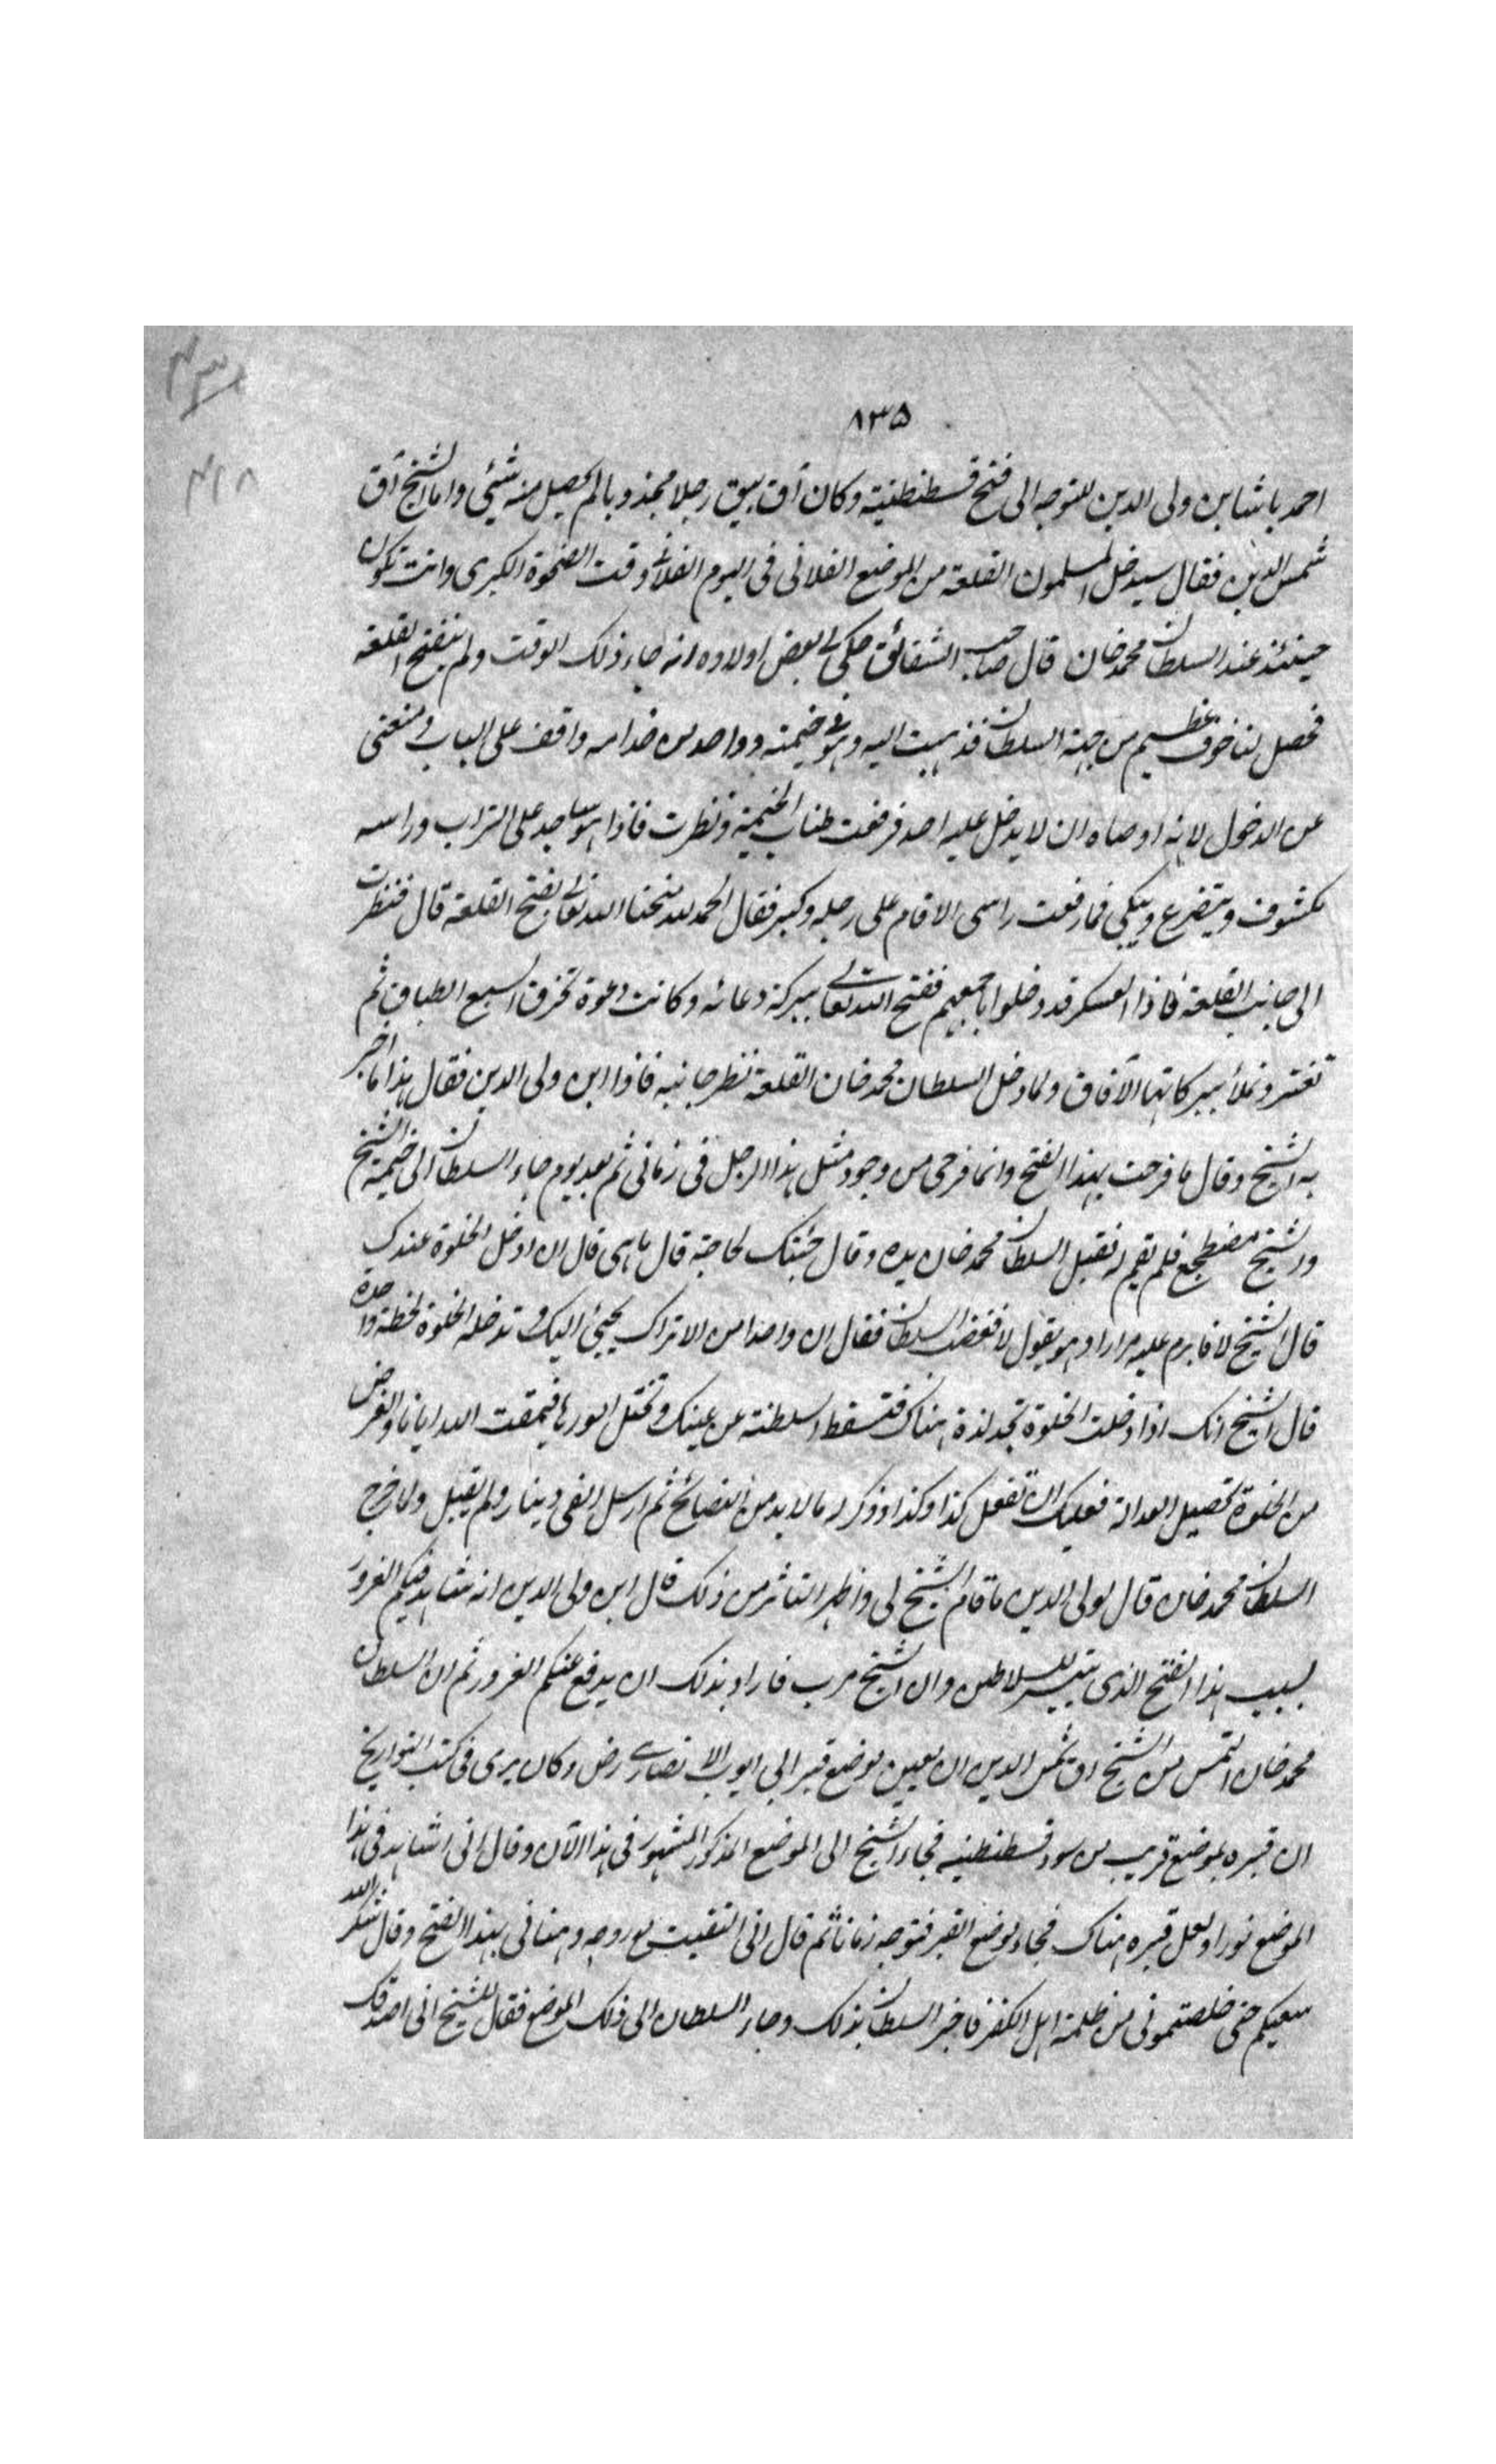 ۸۳۵
احمد باشا بن ولی الدین للتوجه الی فتح قسطنطنیة وکان آق بیق رجلا مجذوبا لم یحصل منه شیٔی واما الشیخ آق
شمس الدین فقال سیدخل المسلمون القلعة من الموضع الفلانی فی الیوم الفلانی وقت الضحوة الکبری وانت تکون
حینئذ عند السلطان محمد خان قال صاحب الشقائق حکی لی بعض اولاده انه جاء ذلک الوقت ولم ینفتح القلعة
فحصل لنا خوف عظیم من جهة السلطان فذهبت الیه وهو فی خیمته وواحد من خدامه واقف علی الباب ومنعنی
عن الدخول لانه اوصاه ان لا یدخل علیه احد فرفعت طناب الخیمة ونظرت فاذا هو ساجد علی التراب وراسه
مکشوف ویتضرع ویبکی فما رفعت راسی الا قام علی رجله وکبر فقال الحمد لله منحنا الله تعالی بفتح القلعة قال فنظرت
الی جانب القلعة فاذا العسکر قد دخلوا باجمعهم ففتح الله تعالی ببرکة دعائه وکانت دعوة تخرق السبع الطباق ثم
تفتر وتملأ ببرکاتها الآفاق ولما دخل السلطان محمد خان القلعة نظر جانبه فاذا ابن ولی الدین فقال هذا ما اخبر
به الشیخ وقال ما فرحت بهذا الفتح وانما فرحی من وجود مثل هذا الرجل فی زمانی ثم بعد یوم جاء السلطان الی خیمة الشیخ
والشیخ مضطجع فلم یقم له فقبل السلطان محمد خان یده وقال جئتک لحاجة قال ما هی قال ان ادخل الخلوة عندک
قال الشیخ لا فابرم علیه مرارا وهو یقول لا فغضب السلطان فقال ان واحدا من الاتراک یجیٔ الیک وتدخله الخلوة لحظة واحدة
قال الشیخ انک اذا دخلت الخلوة تجد لذة هناک فتسقط السلطنة عن عینک وتختل امورها فیمقت الله ایانا والغرض
من الخلوة تحصیل العدالة فعلیک ان تفعل کذا وکذا وذکر له ما لا بد من النصائح ثم ارسل الفی دینار ولم یقبل ولما خرج
السلطان محمد خان قال لولی الدین ما قام الشیخ لی واظهر التاثر من ذلک قال ابن ولی الدین انه شاهد فیکم الغرور
بسبب هذا الفتح الذی لم یتیسر للسلاطین وان الشیخ مرب فاراد بذلک ان یدفع عنکم الغرور ثم ان السلطان
محمد خان التمس من الشیخ آق شمس الدین ان یعین موضع قبر ابی ایوب الانصاری رض وکان یری فی کتب التواریخ
ان قبره بموضع قریب من سور قسطنطنیه فجاء الشیخ الی الموضع المذکور المشهور فی هذا الآن وقال انی اشاهد فی هذا
الموضع نورا ولعل قبره هناک فجاء موضع القبر فتوجه زمانا ثم قال انی التقیت مع روحه وهنانی بهذا الفتح وقال شکر الله
سعیکم حتی خلصتمونی من ظلمة اهل الکفر فاخبر السلطان بذلک وجاء السلطان الی ذلک الموضع فقال للشیخ انی اصدقک